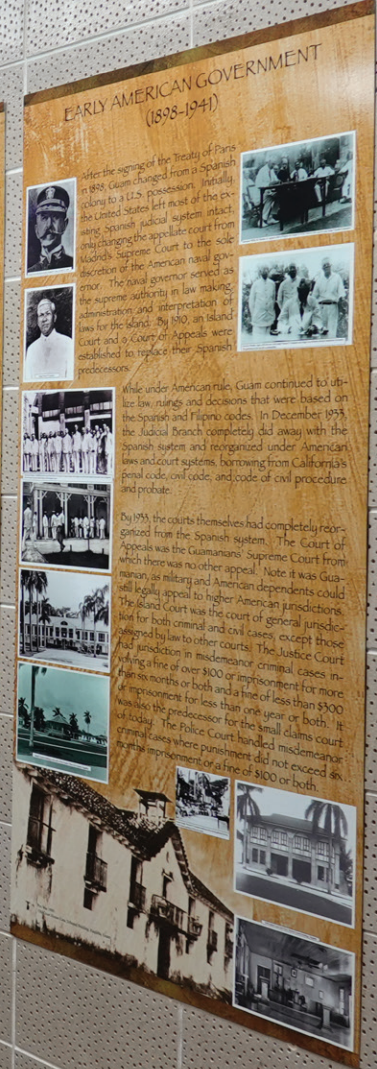 EARLY AMERICAN GOVERNMENT
(1898-1941)
After the signing of the Treaty of Paris
in 1898, Guam changed from a Spanish
colony to a U.S. possession. Initially,
the United States left most of the ex-
isting Spanish judicial system intact,
only changing the appellate court from
Madrid's Supreme Court to the sole
discretion of the American naval gov-
ernor. The naval governor served as
the supreme authority in law making,
administration and interpretation of
laws for the island. By 1910, an Island
Court and a Court of Appeals were
established to replace their Spanish
predecessors.
While under American rule, Guam continued to uti-
lize law, rulings and decisions that were based on
the Spanish and Filipino codes. In December 1933,
the Judicial Branch completely did away with the
Spanish system and reorganized under American
laws and court systems, borrowing from California's
penal code, civil code, and code of civil procedure
and probate.
By 1933, the courts themselves had completely reor-
ganized from the Spanish system. The Court of
Appeals was the Guamanians' Supreme Court from
which there was no other appeal. Note it was Gua-
manian, as military and American dependents could
still legally appeal to higher American jurisdictions.
The Island Court was the court of general jurisdic-
tion for both criminal and civil cases, except those
assigned by law to other courts. The Justice Court
had jurisdiction in misdemeanor criminal cases in-
volving a fine of over $100 or imprisonment for more
than six months or both and a fine of less than $300
or imprisonment for less than one year or both. It
was also the predecessor for the small claims court
of today. The Police Court handled misdemeanor
criminal cases where punishment did not exceed six
months imprisonment or a fine of $100 or both.